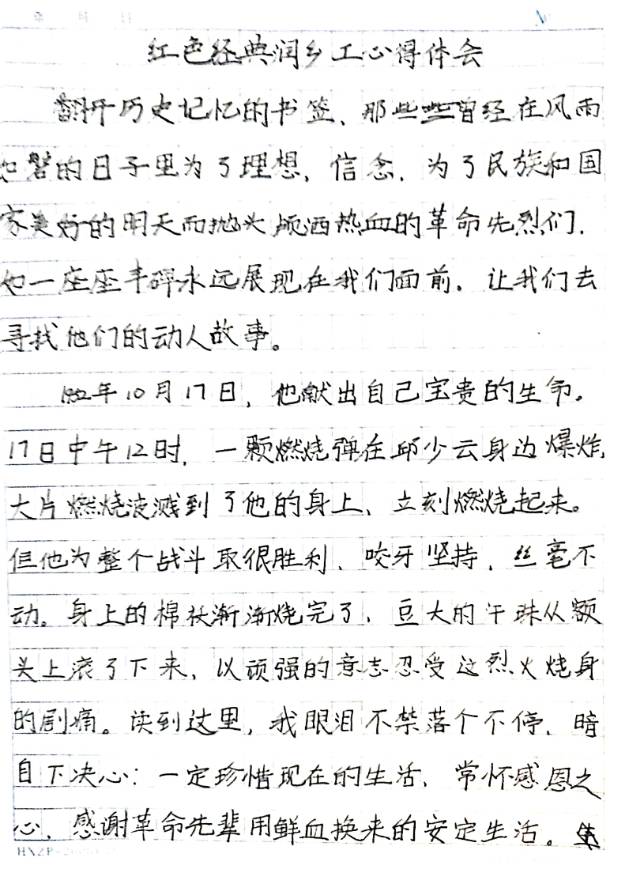 红色经典润乡工心得体会
翻开历史记忆的书签、那些曾经在风雨
如磐的日子里为了理想，信念，为了民族和国
家美好的明天而抛头颅洒热血的革命先烈们，
如一座座丰碑永远展现在我们面前，让我们去
寻找他们的动人故事。
1952年10月17日，他献出自己宝贵的生命。
17日中午12时，一颗燃烧弹在邱少云身边爆炸，
大片燃烧液溅到了他的身上、立刻燃烧起来。
但他为整个战斗取很胜利、咬牙坚持，丝毫不
动。身上的棉袄渐渐烧完了，豆大的汗珠从额
头上滚了下来，以顽强的意志忍受这烈火烧身
的剧痛。读到这里，我眼泪不禁落个不停，暗
自下决心：一定珍惜现在的生活，常怀感恩之
心，感谢革命先辈用鲜血换来的安定生活。